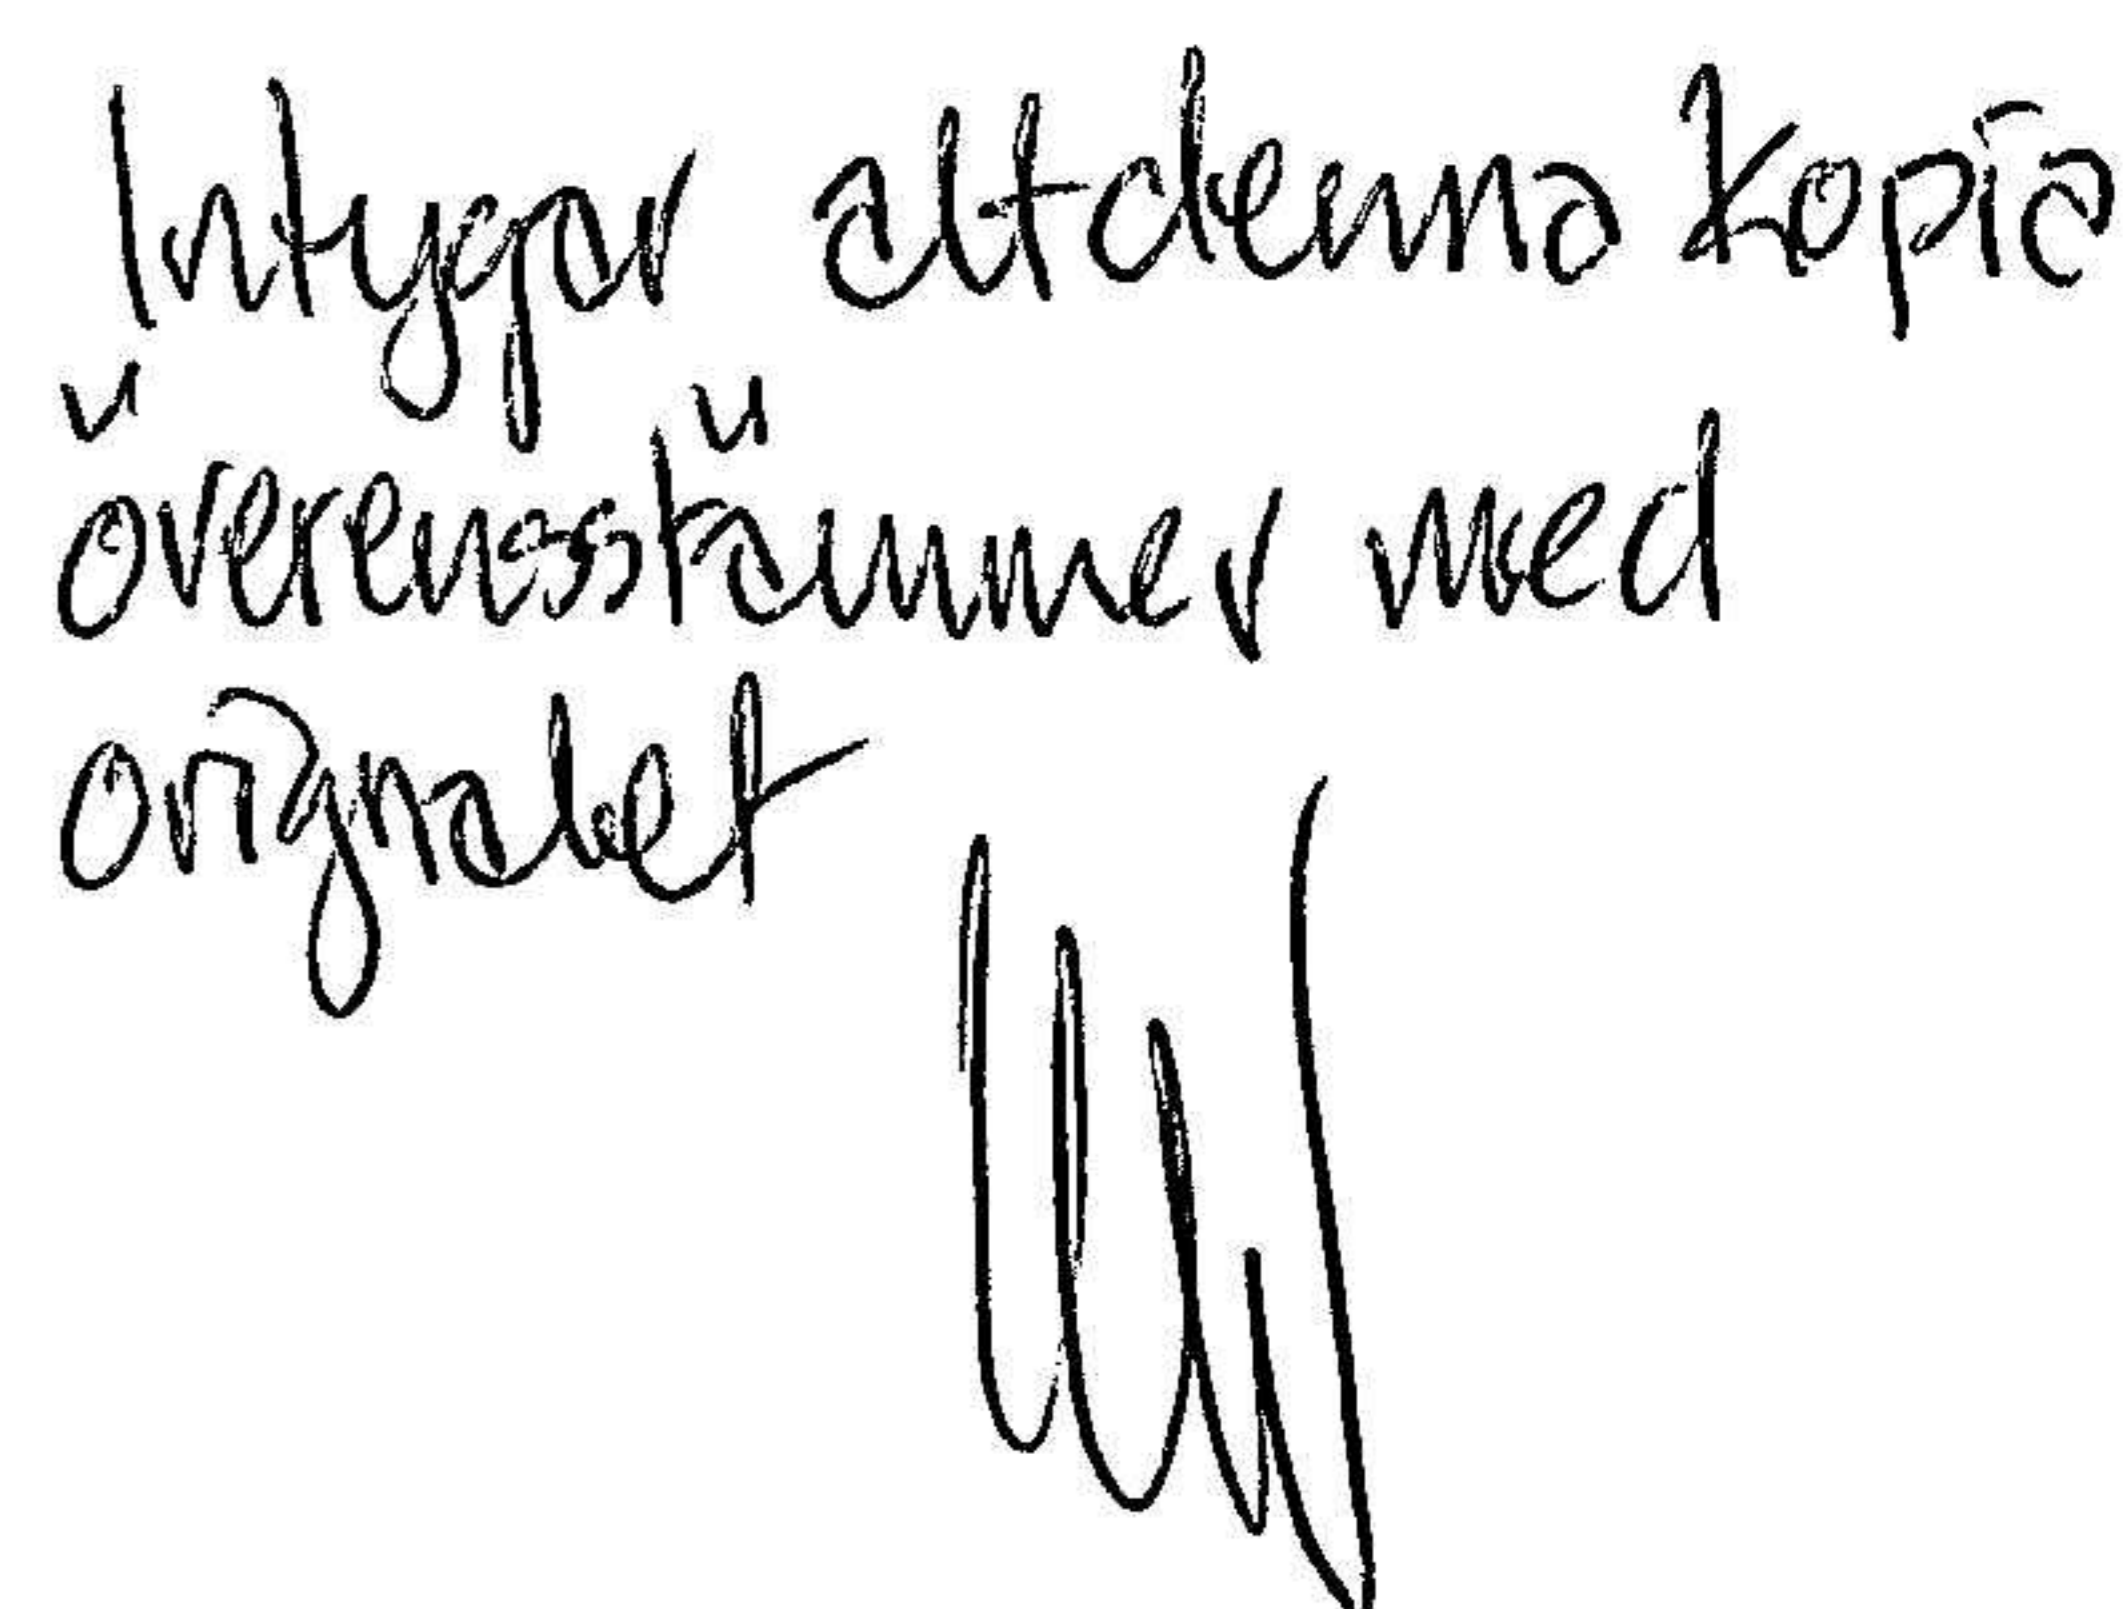 Intygar att denna kopia
överensstämmer med
orignalet